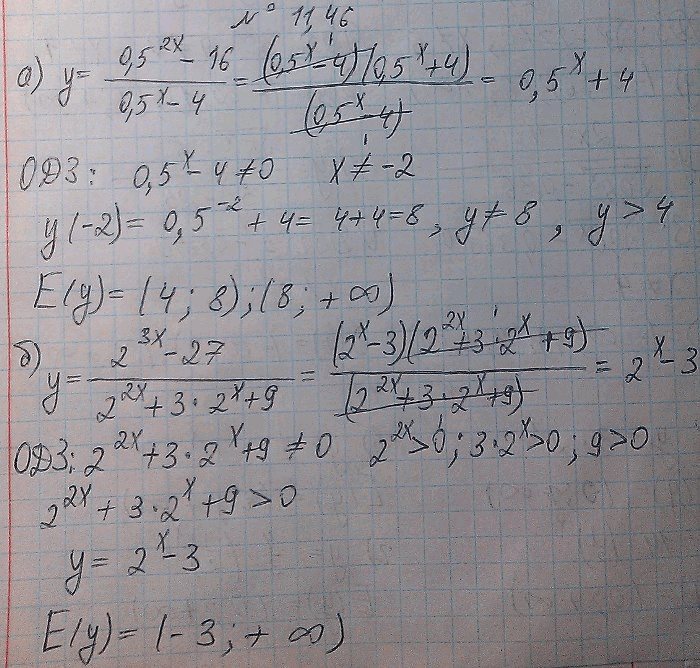 № 11,46
а) y = (0,5^2x - 16)/(0,5^x - 4) = ((0,5^x - 4)(0,5^x + 4))/((0,5^x - 4)) = 0,5^x + 4
ОДЗ: 0,5^x - 4 ≠ 0 x ≠ -2
y(-2) = 0,5^-2 + 4 = 4+4=8, y ≠ 8, y > 4
E(y) = (4; 8); (8; +∞)
б) y = (2^3x - 27)/(2^2x + 3·2^x + 9) = ((2^x - 3)(2^2x + 3·2^x + 9))/((2^2x + 3·2^x + 9)) = 2^x - 3
ОДЗ: 2^2x + 3·2^x + 9 ≠ 0 2^2x > 0; 3·2^x > 0; 9 > 0
2^2x + 3·2^x + 9 > 0
y = 2^x - 3
E(y) = (-3; +∞)